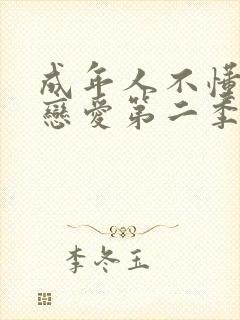 成年人不懂
戀愛第二季
李冬玉